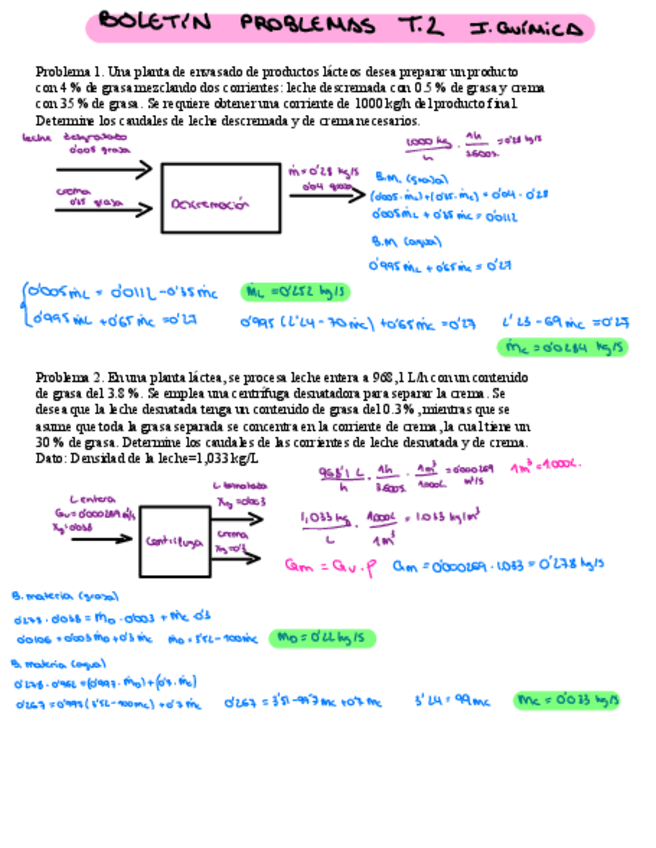 BOLETÍN PROBLEMAS T.2 I. QUÍMICA
Problema 1. Una planta de envasado de productos lácteos desea preparar un producto
con 4 % de grasa mezclando dos corrientes: leche descremada con 0.5 % de grasa y crema
con 35 % de grasa. Se requiere obtener una corriente de 1000 kg/h del producto final.
Determine los caudales de leche descremada y de crema necesarios.
leche desgrasada
0'005 grasa
crema
0'35 grasa
Descremación
ṁ = 0'28 kg/s
0'04 grasa
1000 kg/h · 1h/3600s = 0'28 kg/s
B.M. (grasa)
(0'005·ṁL)+(0'35·ṁc) = 0'04 · 0'28
0'005ṁL + 0'35ṁc = 0'0112
B.M (agua)
0'995ṁL + 0'65ṁc = 0'27
0'005ṁL = 0'0112 - 0'35ṁc
ṁL = 0'252 kg/s
0'995ṁL + 0'65ṁc = 0'27
0'995 (2'24 - 70ṁc) + 0'65ṁc = 0'27
2'23 - 69ṁc = 0'27
ṁc = 0'0284 kg/s
Problema 2. En una planta láctea, se procesa leche entera a 968,1 L/h con un contenido
de grasa del 3.8 %. Se emplea una centrífuga desnatadora para separar la crema. Se
desea que la leche desnatada tenga un contenido de grasa del 0.3 %, mientras que se
asume que toda la grasa separada se concentra en la corriente de crema, la cual tiene un
30 % de grasa. Determine los caudales de las corrientes de leche desnatada y de crema.
Dato: Densidad de la leche=1,033 kg/L
968'1 L/h · 1h/3600s · 1m³/1000L = 0'000269 m³/s
1m³ = 1000L.
L entera
Gv = 0'000269 m³/s
Xg = 0'038
Centrífuga
Xg = 0'003
crema
Xg = 0'3
1,033 kg/L · 1000L/1m³ = 1.033 kg/m³
Gm = Gv · ρ
Gm = 0'000269 · 1.033 = 0'278 kg/s
B. materia (grasa)
0'278 · 0'038 = ṁD · 0'003 + ṁc · 0'3
0'0106 = 0'003ṁD + 0'3ṁc
ṁD = 3'52 - 100ṁc
ṁD = 0'22 kg/s
B. materia (agua)
0'278 · 0'962 = (0'997 · ṁD) + (0'7 · ṁc)
0'267 = 0'997 (3'52 - 100mc) + 0'7ṁc
0'267 = 3'51 - 99'7mc + 0'7mc
3'24 = 99mc
mc = 0'033 kg/s